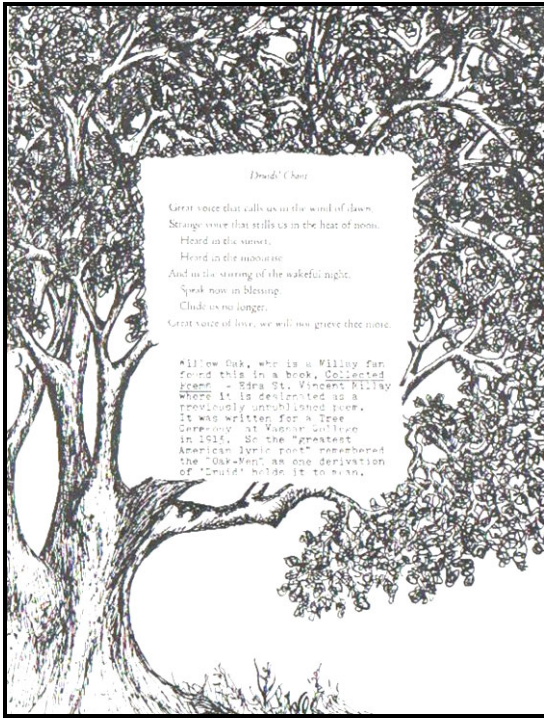 Druids' Chant
Great voice that calls us in the wind of dawn,
Strange voice that stills us in the heat of noon,
Heard in the sunset,
Heard in the moonrise
And in the stirring of the wakeful night,
Speak now in blessing,
Chide us no longer,
Great voice of love, we will not grieve thee more.
Willow Oak, who is a Millay fan
found this in a book, Collected
Poems - Edna St. Vincent Millay
where it is designated as a
previously unpublished poem.
It was written for a Tree
Ceremony at Vassar College
in So the "greatest
American lyric poet" remembered
the "Oak-Men" as one derivation
of "Druid" holds it to mean.